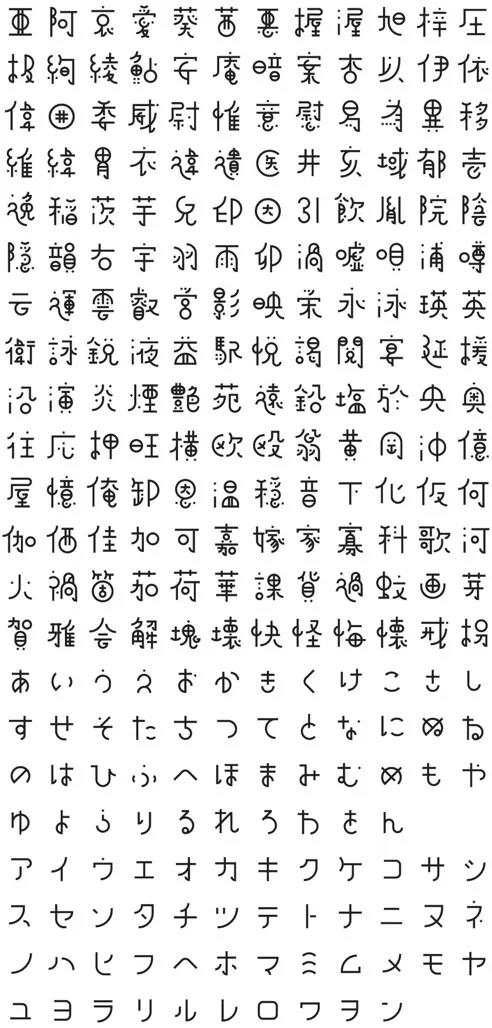 亜 阿 哀 愛 葵 茜 悪 握 渥 旭 梓 圧
扱 絢 綾 鮎 安 庵 暗 案 杏 以 伊 依
偉 囲 委 威 尉 惟 意 慰 易 為 異 移
維 緯 胃 衣 違 遺 医 井 亥 域 郁 壱
逸 稲 茨 芋 允 印 因 引 飲 胤 院 陰
隠 韻 右 宇 羽 雨 卯 渦 嘘 唄 浦 噂
云 運 雲 叡 営 影 映 栄 永 泳 瑛 英
衛 詠 鋭 液 益 駅 悦 謁 閲 宴 延 援
沿 演 炎 煙 艶 苑 遠 鉛 塩 於 央 奥
往 応 押 旺 横 欧 殴 翁 黄 岡 沖 億
屋 憶 俺 卸 恩 温 穏 音 下 化 仮 何
伽 価 佳 加 可 嘉 嫁 家 寡 科 歌 河
火 禍 箇 茄 荷 華 課 貨 過 蚊 画 芽
賀 雅 会 解 塊 壊 快 怪 悔 懐 戒 拐
あ い う え お か き く け こ さ し
す せ そ た ち つ て と な に ぬ ね
の は ひ ふ へ ほ ま み む め も や
ゆ よ ら り る れ ろ わ を ん
ア イ ウ エ オ カ キ ク ケ コ サ シ
ス セ ソ タ チ ツ テ ト ナ ニ ヌ ネ
ノ ハ ヒ フ ヘ ホ マ ミ ム メ モ ヤ
ユ ヨ ラ リ ル レ ロ ワ ヲ ン